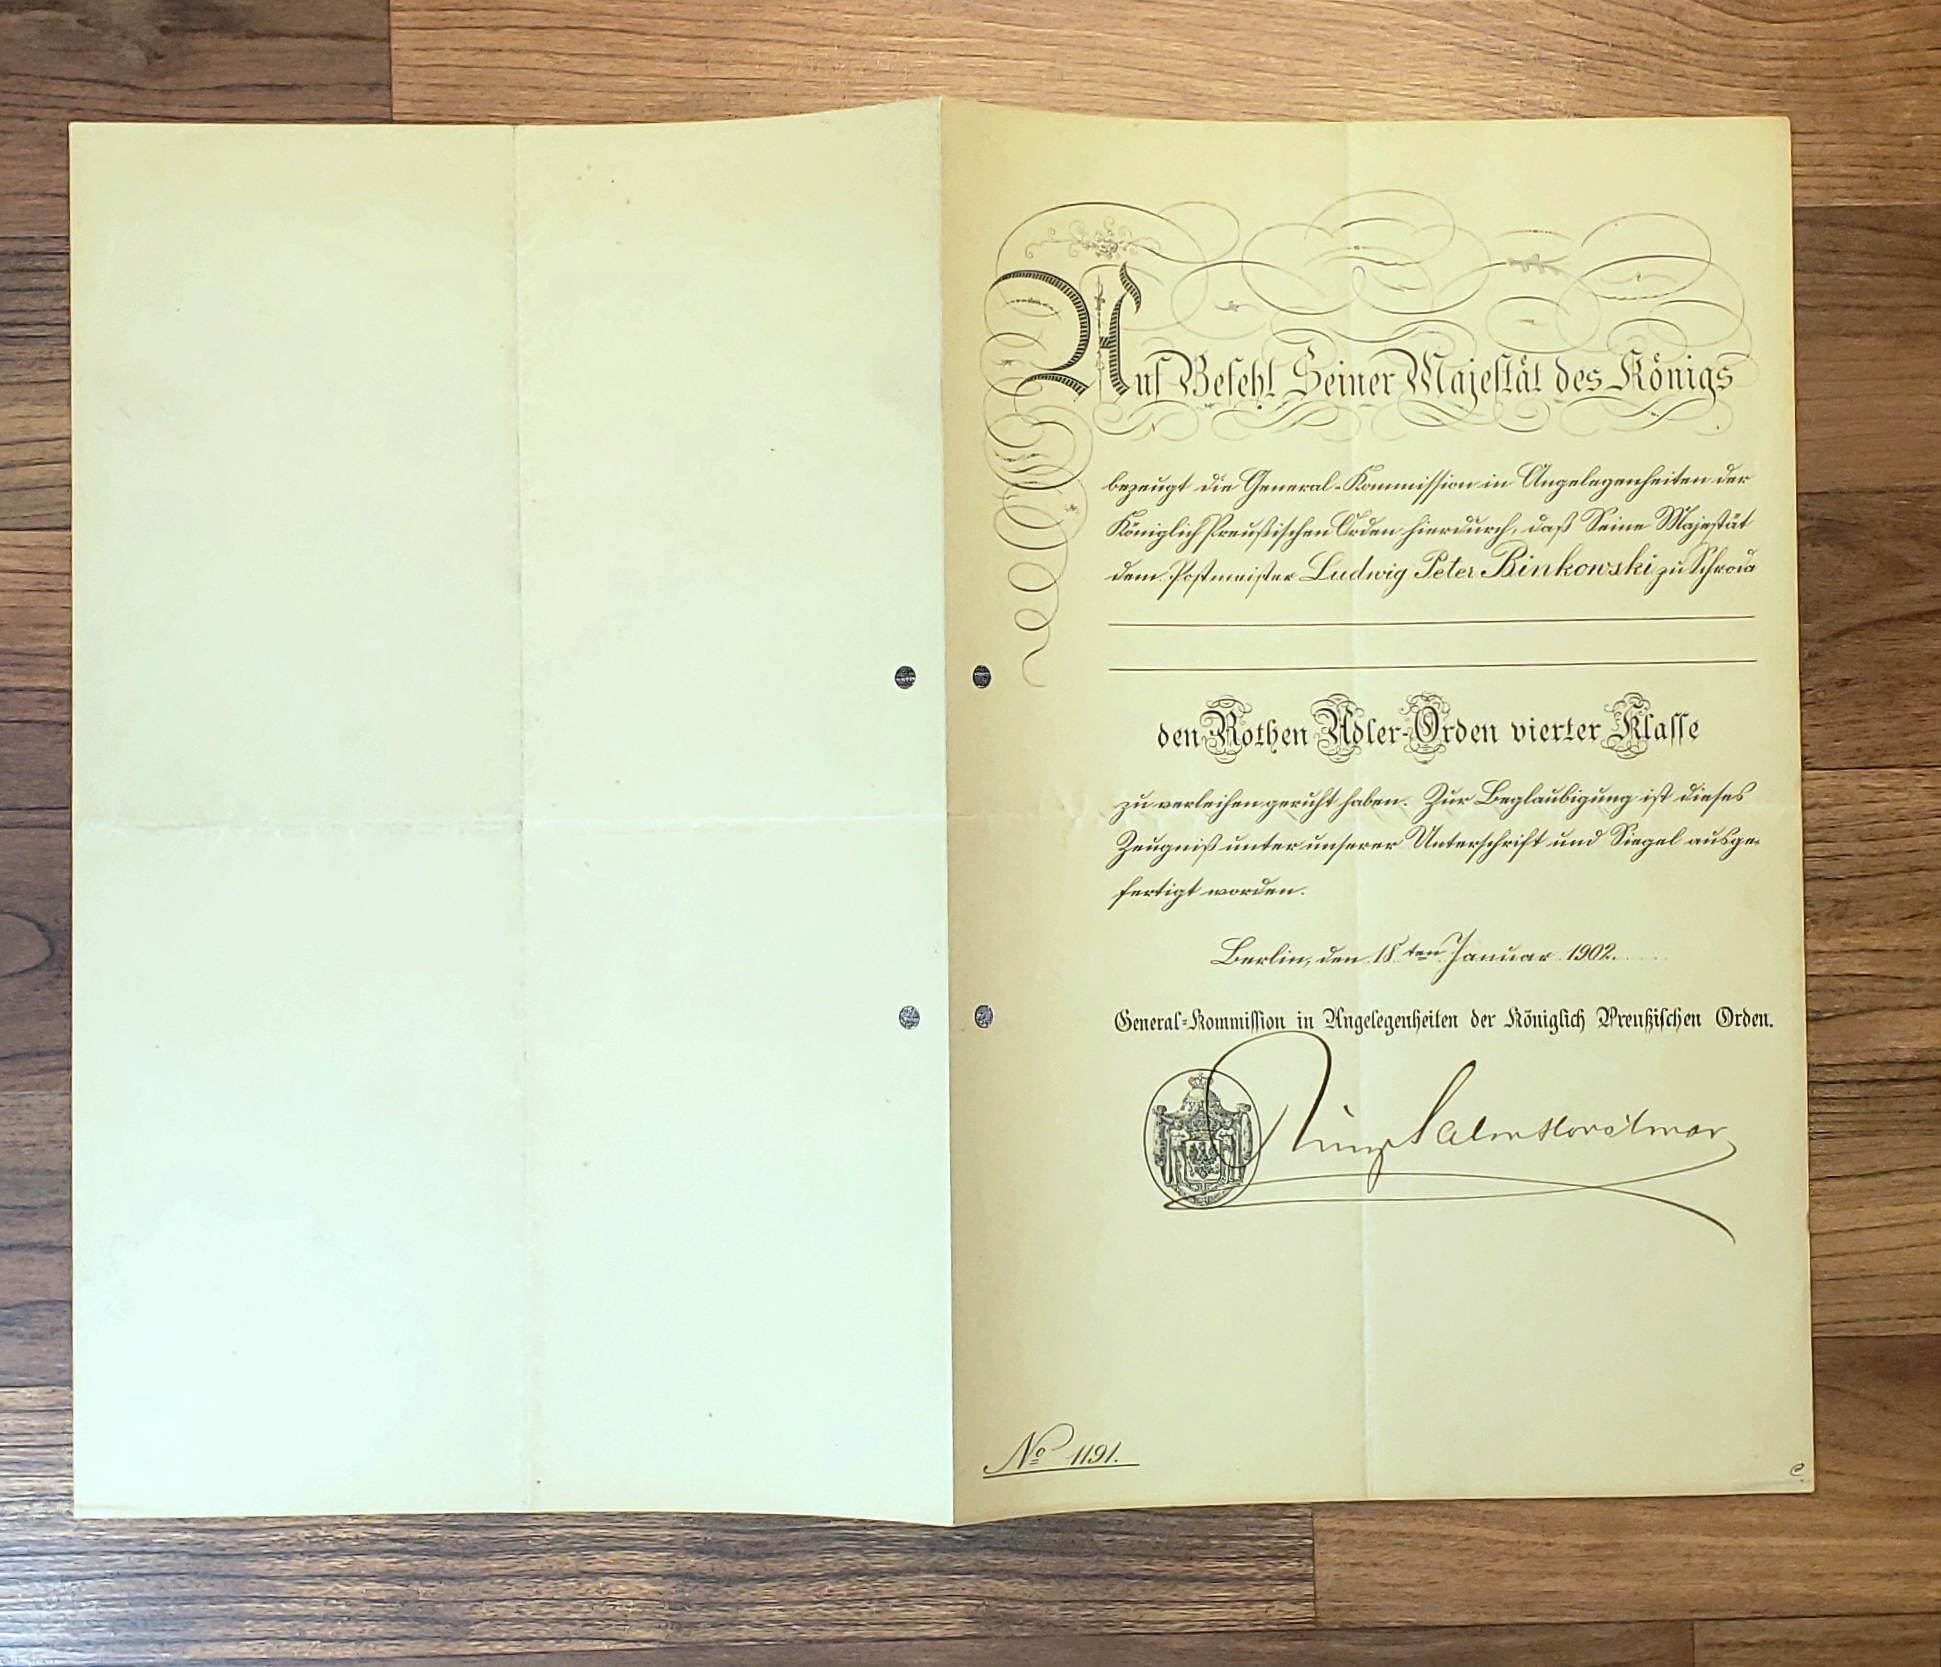 Auf Befehl Seiner Majestät des Königs
bezeugt die General-Kommission in Angelegenheiten der
Königlich Preußischen Orden hierdurch, daß Seine Majestät
dem Postmeister Ludwig Peter Binkowski zu Schroda
den Rothen Adler-Orden vierter Klasse
zu verleihen geruht haben. Zur Beglaubigung ist dieses
Zeugniß unter unserer Unterschrift und Siegel ausge-
fertigt worden.
Berlin, den 18ten Januar 1902.
General-Kommission in Angelegenheiten der Königlich Preußischen Orden.
Salm Horstmar
No 1191.
C.